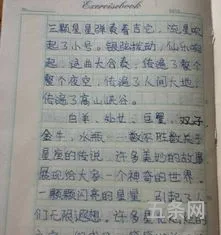 Exercisebook
三颗星星弹奏着吉它,流星吹
起了小号。银弦拨动,仙乐响
起,这曲大合奏,传遍了整个
整个夜空,传遍了人间大地,
传遍了高山峡谷。
白羊、仙女、巨蟹、双子
金牛,水瓶一一数不胜数关于
星座的传说,许多美妙的故事
展现给大家一个神奇的世界。
一颗颗闪亮的星星,引起人
们无限遐想。许多星
五条网